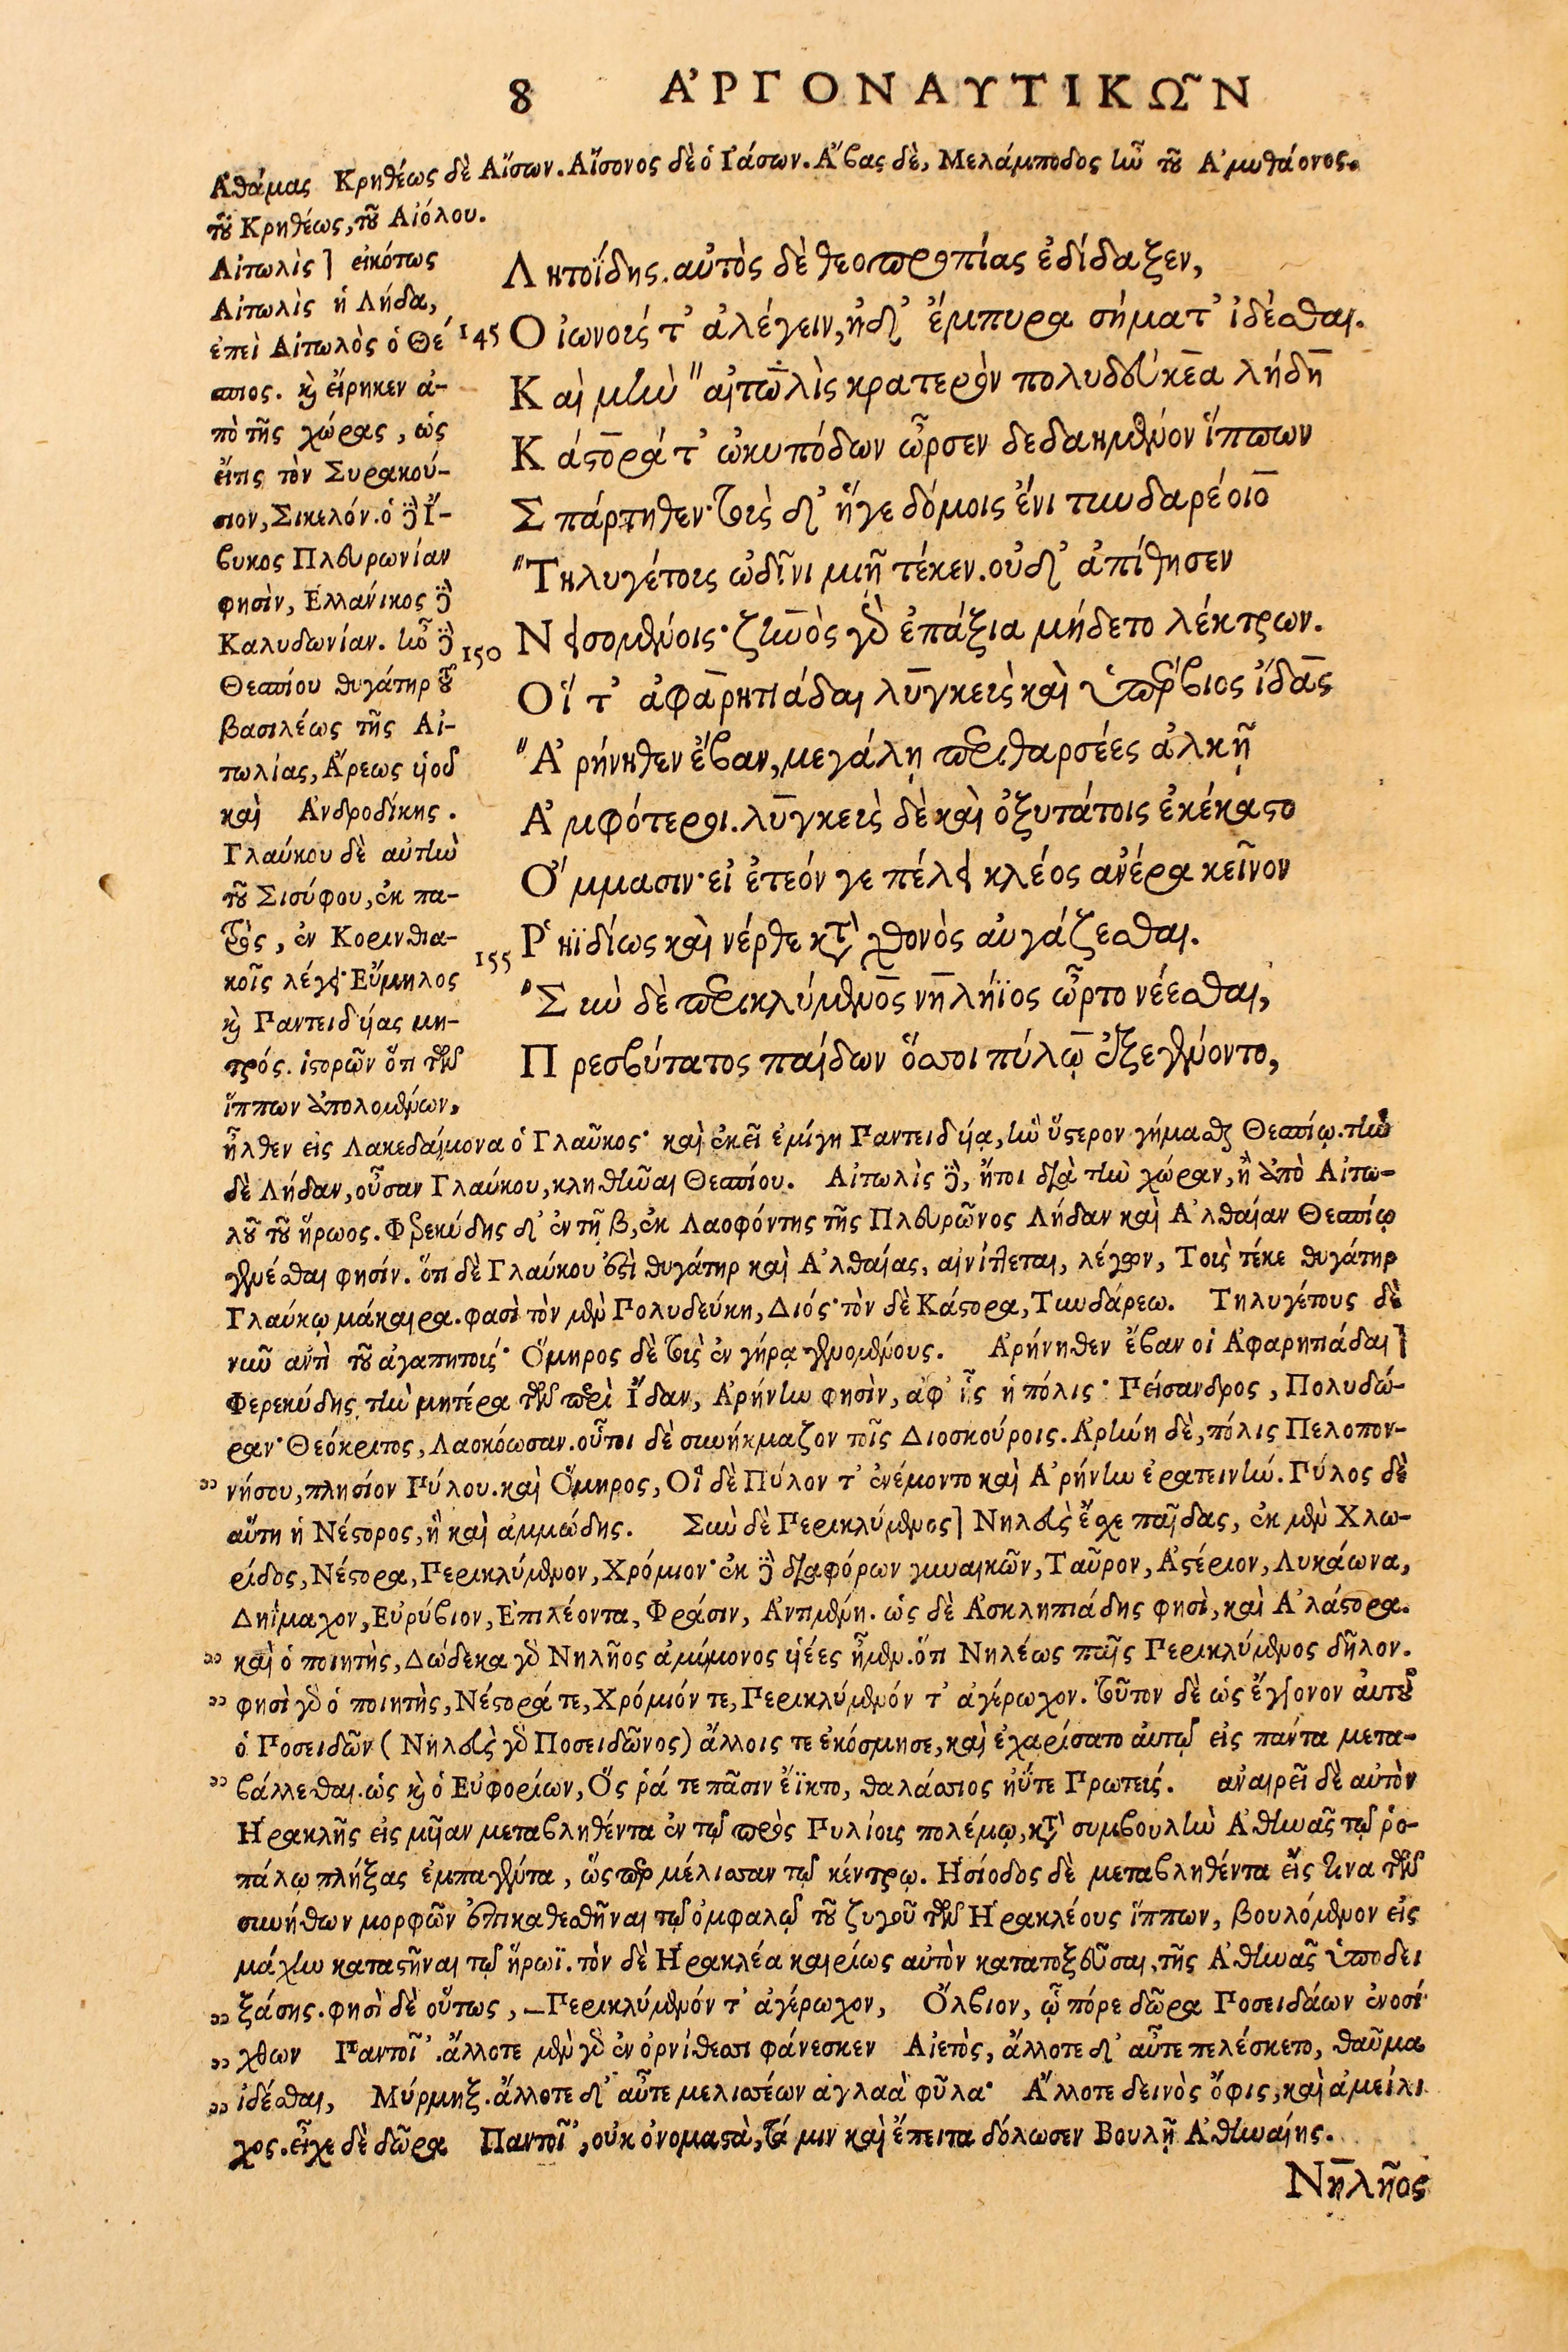 8 ἈΡΓΟΝΑΥΤΙΚΩ͂Ν
Ἀθάμας Κρηθέως δὲ Αἴσων. Αἴσονος δὲ ὁ Ἰάσων. Ἄβας δὲ, Μελάμποδος ἰῶ τοῦ Ἀμυθάονος.
τοῦ Κρηθέως, τοῦ Αἰόλου.
Αἰτωλὶς] εἰκότως
Αἰτωλὶς ἡ Λήδα,
ἐπεὶ Αἰτωλὸς ὁ Θέ
στιος. καὶ εἴρηκεν ἀ-
πὸ τῆς χώρας, ὡς
εἴ τις τὸν Συρακού-
σιον, Σικελόν. ὁ δὲ Ἴ-
βυκος Πλευρωνίαν
φησὶν, Ἑλλάνικος δὲ
Καλυδωνίαν. ἦν δὲ
Θεστίου θυγάτηρ τοῦ
βασιλέως τῆς Αἰ-
τωλίας, Ἄρεως υἱοῦ
καὶ Ἀνδροδίκης.
Γλαύκου δὲ αὐτὴν
τοῦ Σισύφου, ἐκ πα-
τρὸς, ἐν Κορινθια-
κοῖς λέγει Εὔμηλος
καὶ Παντειδυίας μη-
τρός. ἱστορῶν ὅτι τῶν
ἵππων ἀπολομένων,
Λητοΐδης. αὐτὸς δὲ θεοπροπίας ἐδίδαξεν,
145 Οἰωνούς τ' ἀλέγειν, ἠδ' ἔμπυρα σήματ' ἰδέσθαι.
Καὶ μὴν αἰτωλὶς κρατερὸν πολυδεύκεα λήδη
Κάστορά τ' ὠκυπόδων ὦρσεν δεδαημένον ἵππων
Σπάρτηθεν· τοὺς δ' ἥγε δόμοις ἔνι τυνδαρέοιο
Τηλυγέτους ὠδῖνι μιῇ τέκεν. οὐδ' ἀπίθησεν
150 Νεισομένοις· ζηνὸς γὰρ ἐπάξια μήδετο λέκτρων.
Οἵ τ' ἀφαρητιάδαι λυγκεὺς καὶ ὑπέρβιος ἴδας
Ἀρήνηθεν ἔβαν, μεγάλῃ περιθαρσέες ἀλκῇ
Ἀμφότεροι. λυγκεὺς δὲ καὶ ὀξυτάτοις ἐκέκαστο
Ὄμμασιν· εἰ ἐτεόν γε πέλει κλέος ἀνέρα κεῖνον
155 Ῥηϊδίως καὶ νέρθε κατὰ χθονὸς αὐγάζεσθαι.
Σὺν δὲ περικλύμενος νηλήϊος ὦρτο νέεσθαι,
Πρεσβύτατος παίδων ὅσσοι πύλῳ ἐξεγένοντο,
ἦλθεν εἰς Λακεδαίμονα ὁ Γλαῦκος· καὶ ἐκεῖ ἐμίγη Παντειδυίᾳ, ἣν ὕστερον γήμασθαι Θεστίῳ. τὴν
δὲ Λήδαν, οὖσαν Γλαύκου, κληθῆναι Θεστίου. Αἰτωλὶς δὲ, ἤτοι διὰ τὴν χώραν, ἢ ἀπὸ Αἰτω-
λοῦ τοῦ ἥρωος. Φερεκύδης δ' ἐν τῇ β, ἐκ Λαοφόντης τῆς Πλευρῶνος Λήδαν καὶ Ἀλθαίαν Θεστίῳ
γενέσθαι φησίν. ὅτι δὲ Γλαύκου ἐστὶ θυγάτηρ καὶ Ἀλθαίας, αἰνίττεται, λέγων, Τοὺς τέκε θυγάτηρ
Γλαύκῳ μάκαιρα. φασὶ τὸν μὲν Πολυδεύκη, Διός· τὸν δὲ Κάστορα, Τυνδάρεω. Τηλυγέτους δὲ
νῦν ἀντὶ τοῦ ἀγαπητούς· Ὅμηρος δὲ τοὺς ἐν γήρᾳ γενομένους. Ἀρήνηθεν ἔβαν οἱ Ἀφαρητιάδαι]
Φερεκύδης τὴν μητέρα τῶν περὶ Ἴδαν, Ἀρήνην φησὶν, ἀφ' ἧς ἡ πόλις· Πείσανδρος, Πολυδώ-
ραν· Θεόκριτος, Λαοκόωσαν. οὗτοι δὲ συνήκμαζον τοῖς Διοσκούροις. Ἀρήνη δὲ, πόλις Πελοπον-
νήσου, πλησίον Πύλου. καὶ Ὅμηρος, Οἳ δὲ Πύλον τ' ἐνέμοντο καὶ Ἀρήνην ἐρατεινήν. Πύλος δὲ
αὕτη ἡ Νέστορος, ἣ καὶ ἀμμώδης. Σὺν δὲ Περικλύμενος] Νηλεὺς ἔσχε παῖδας, ἐκ μὲν Χλω-
ρίδος, Νέστορα, Περικλύμενον, Χρόμιον· ἐκ δὲ διαφόρων γυναικῶν, Ταῦρον, Ἀστέριον, Λυκάωνα,
Δηΐμαχον, Εὐρύβιον, Ἐπιλέοντα, Φράσιν, Ἀντιμένη. ὡς δὲ Ἀσκληπιάδης φησὶ, καὶ Ἀλάστορα.
καὶ ὁ ποιητὴς, Δώδεκα γὰρ Νηλῆος ἀμύμονος υἱέες ἦμεν. ὅτι Νηλέως παῖς Περικλύμενος δῆλον.
φησὶ γὰρ ὁ ποιητὴς, Νέστορά τε, Χρόμιόν τε, Περικλύμενόν τ' ἀγέρωχον. τοῦτον δὲ ὡς ἔγγονον αὐτοῦ
ὁ Ποσειδῶν (Νηλεὺς γὰρ Ποσειδῶνος) ἄλλοις τε ἐκόσμησε, καὶ ἐχαρίσατο αὐτῷ εἰς πάντα μετα-
βάλλεσθαι. ὡς καὶ ὁ Εὐφορίων, Ὅς ῥά τε πᾶσιν ἔϊκτο, θαλάσσιος ἠΰτε Πρωτεύς. ἀναιρεῖ δὲ αὐτὸν
Ἡρακλῆς εἰς μυῖαν μεταβληθέντα ἐν τῷ πρὸς Πυλίους πολέμῳ, κατὰ συμβουλὴν Ἀθηνᾶς τῷ ῥο-
πάλῳ πλήξας ἐμπαγέντα, ὥσπερ μέλισσαν τῷ κέντρῳ. Ἡσίοδος δὲ μεταβληθέντα εἴς τινα τῶν
συνήθων μορφῶν ἐπικαθεσθῆναι τῷ ὀμφαλῷ τοῦ ζυγοῦ τῶν Ἡρακλέους ἵππων, βουλόμενον εἰς
μάχην καταστῆναι τῷ ἥρωϊ. τὸν δὲ Ἡρακλέα καιρίως αὐτὸν κατατοξεῦσαι, τῆς Ἀθηνᾶς ὑποδει
ξάσης. φησὶ δὲ οὕτως, —Περικλύμενόν τ' ἀγέρωχον, Ὄλβιον, ᾧ πόρε δῶρα Ποσειδάων ἐνοσί-
χθων Παντοῖ'. ἄλλοτε μὲν γὰρ ἐν ὀρνίθεσσι φάνεσκεν Αἰετὸς, ἄλλοτε δ' αὖτε πελέσκετο, θαῦμα
ἰδέσθαι, Μύρμηξ. ἄλλοτε δ' αὖτε μελισσέων ἀγλαὰ φῦλα· Ἄλλοτε δεινὸς ὄφις, καὶ ἀμείλι
χος. εἶχε δὲ δῶρα Παντοῖ', οὐκ ὀνομαστὰ, τά μιν καὶ ἔπειτα δόλωσεν Βουλῇ Ἀθηναίης.
Νηλῆος